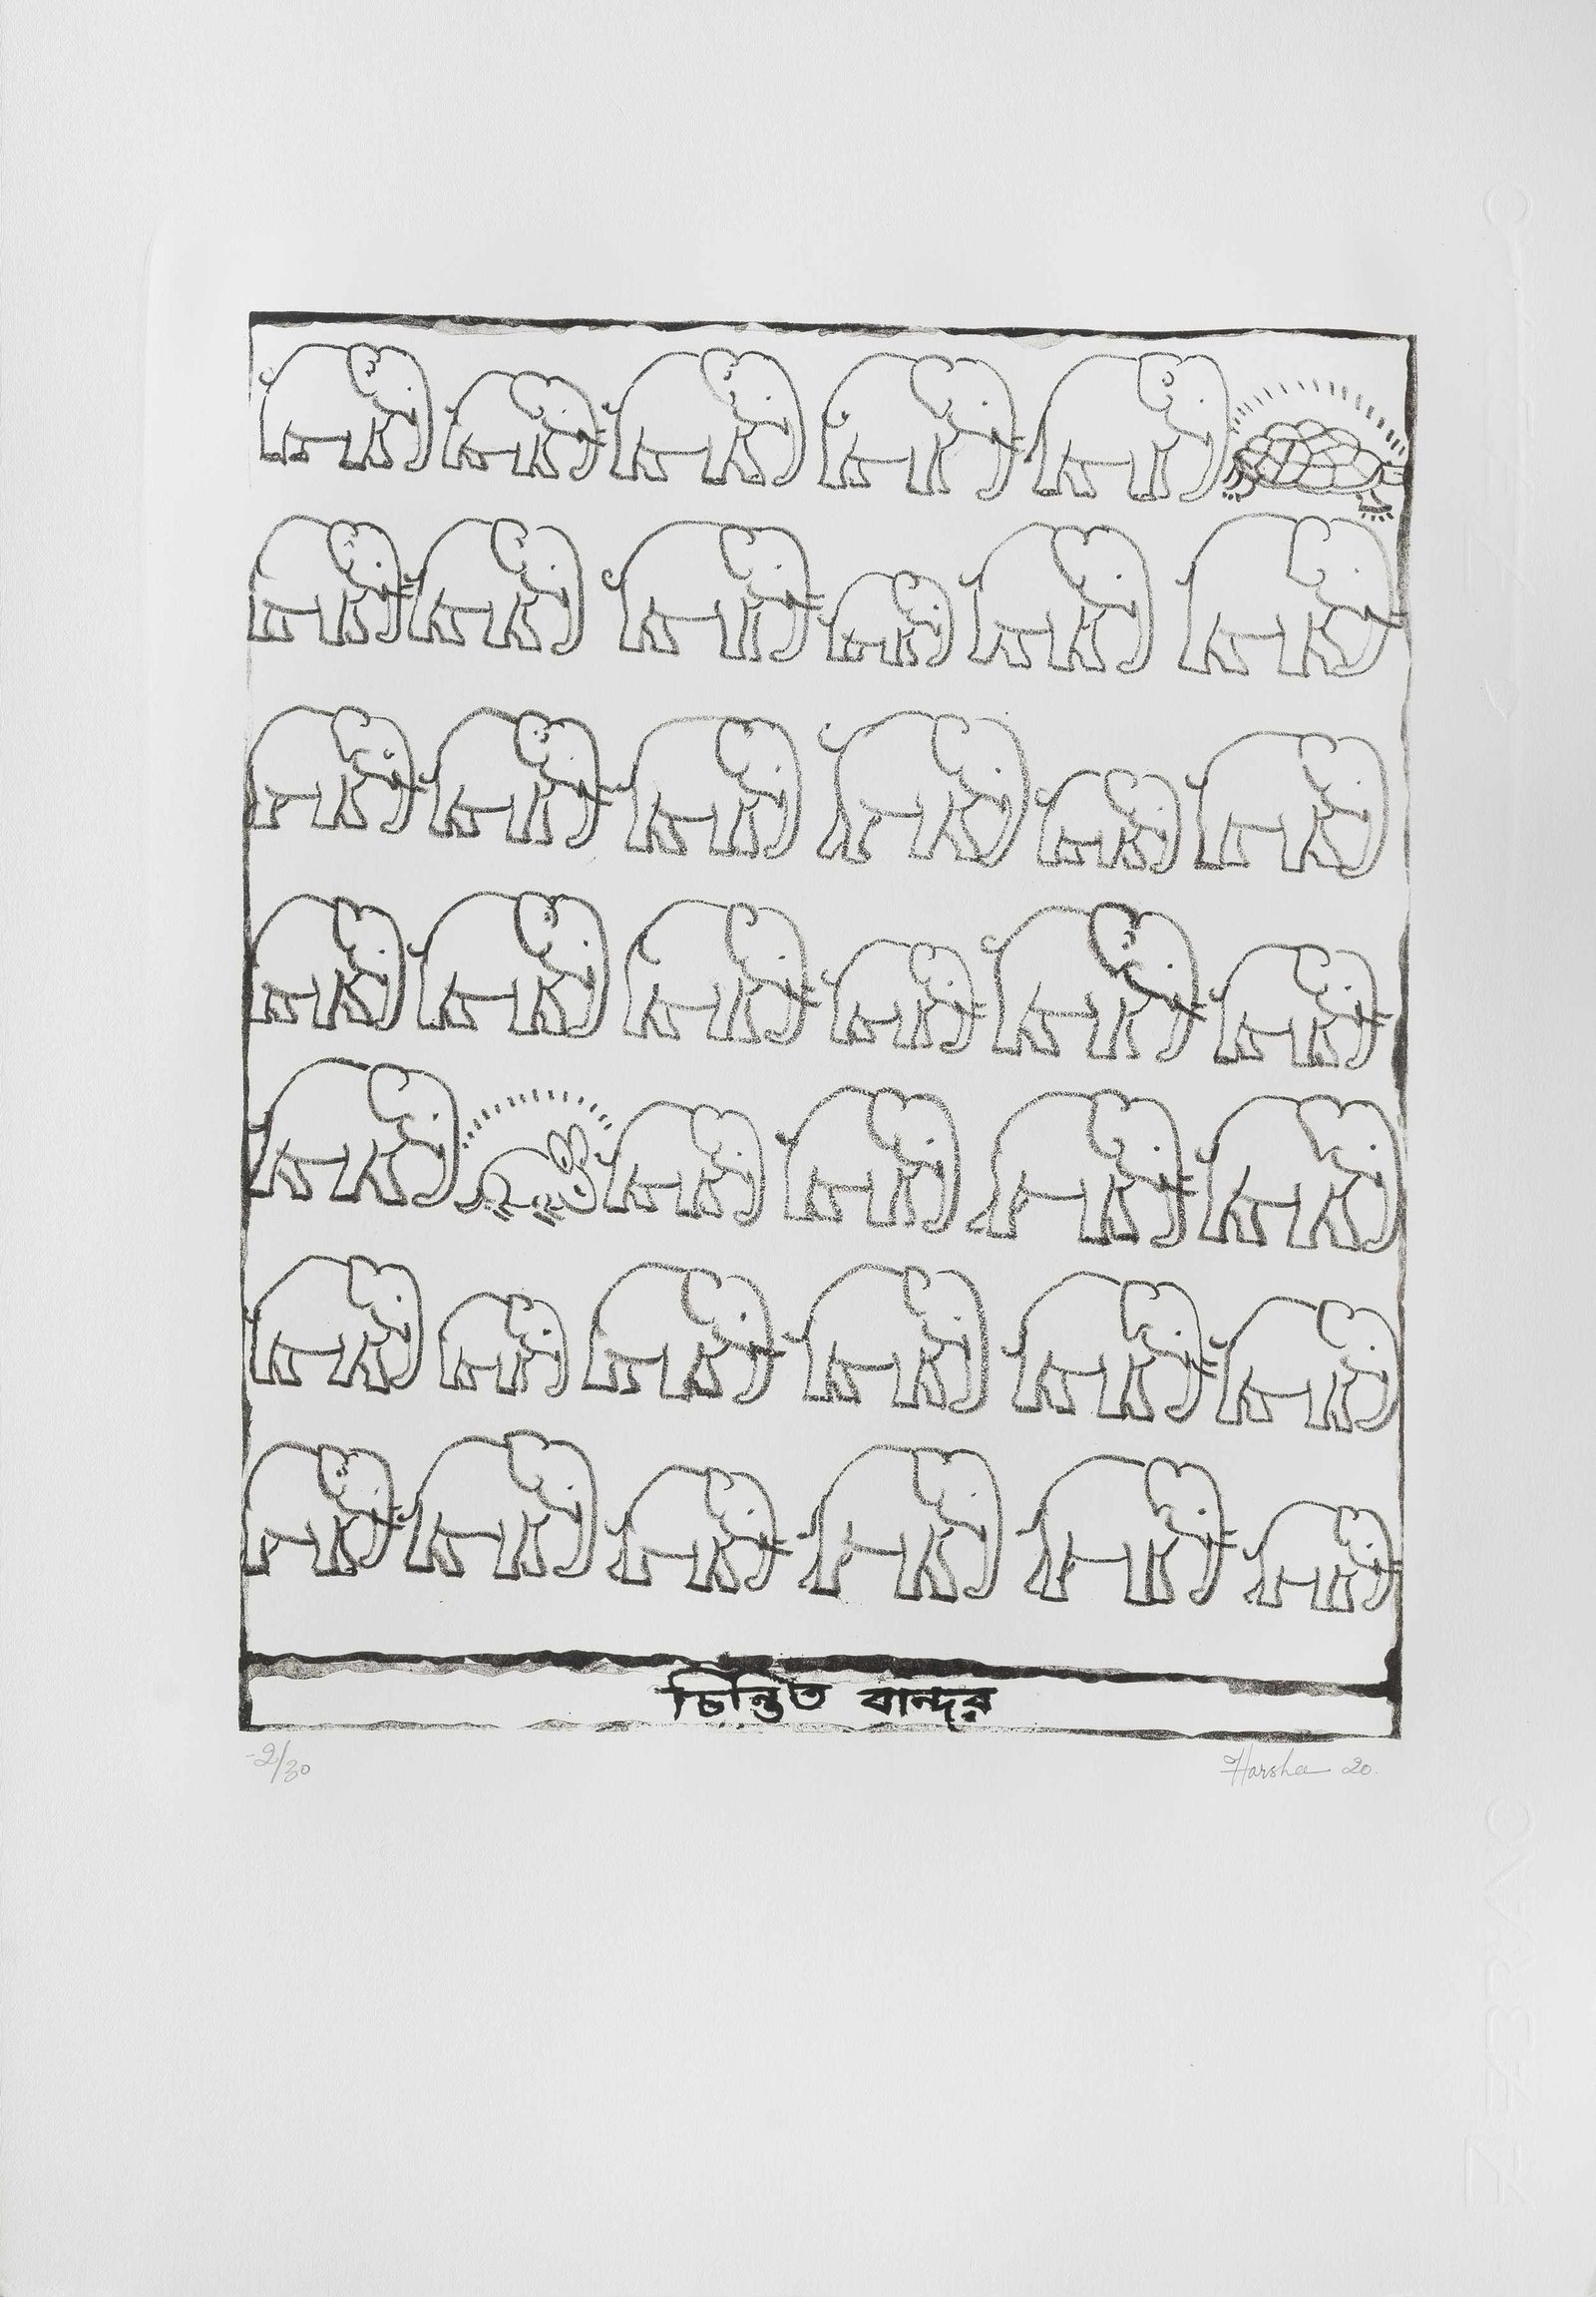 চিন্তিত বান্দর
2/30
Harsha 20.